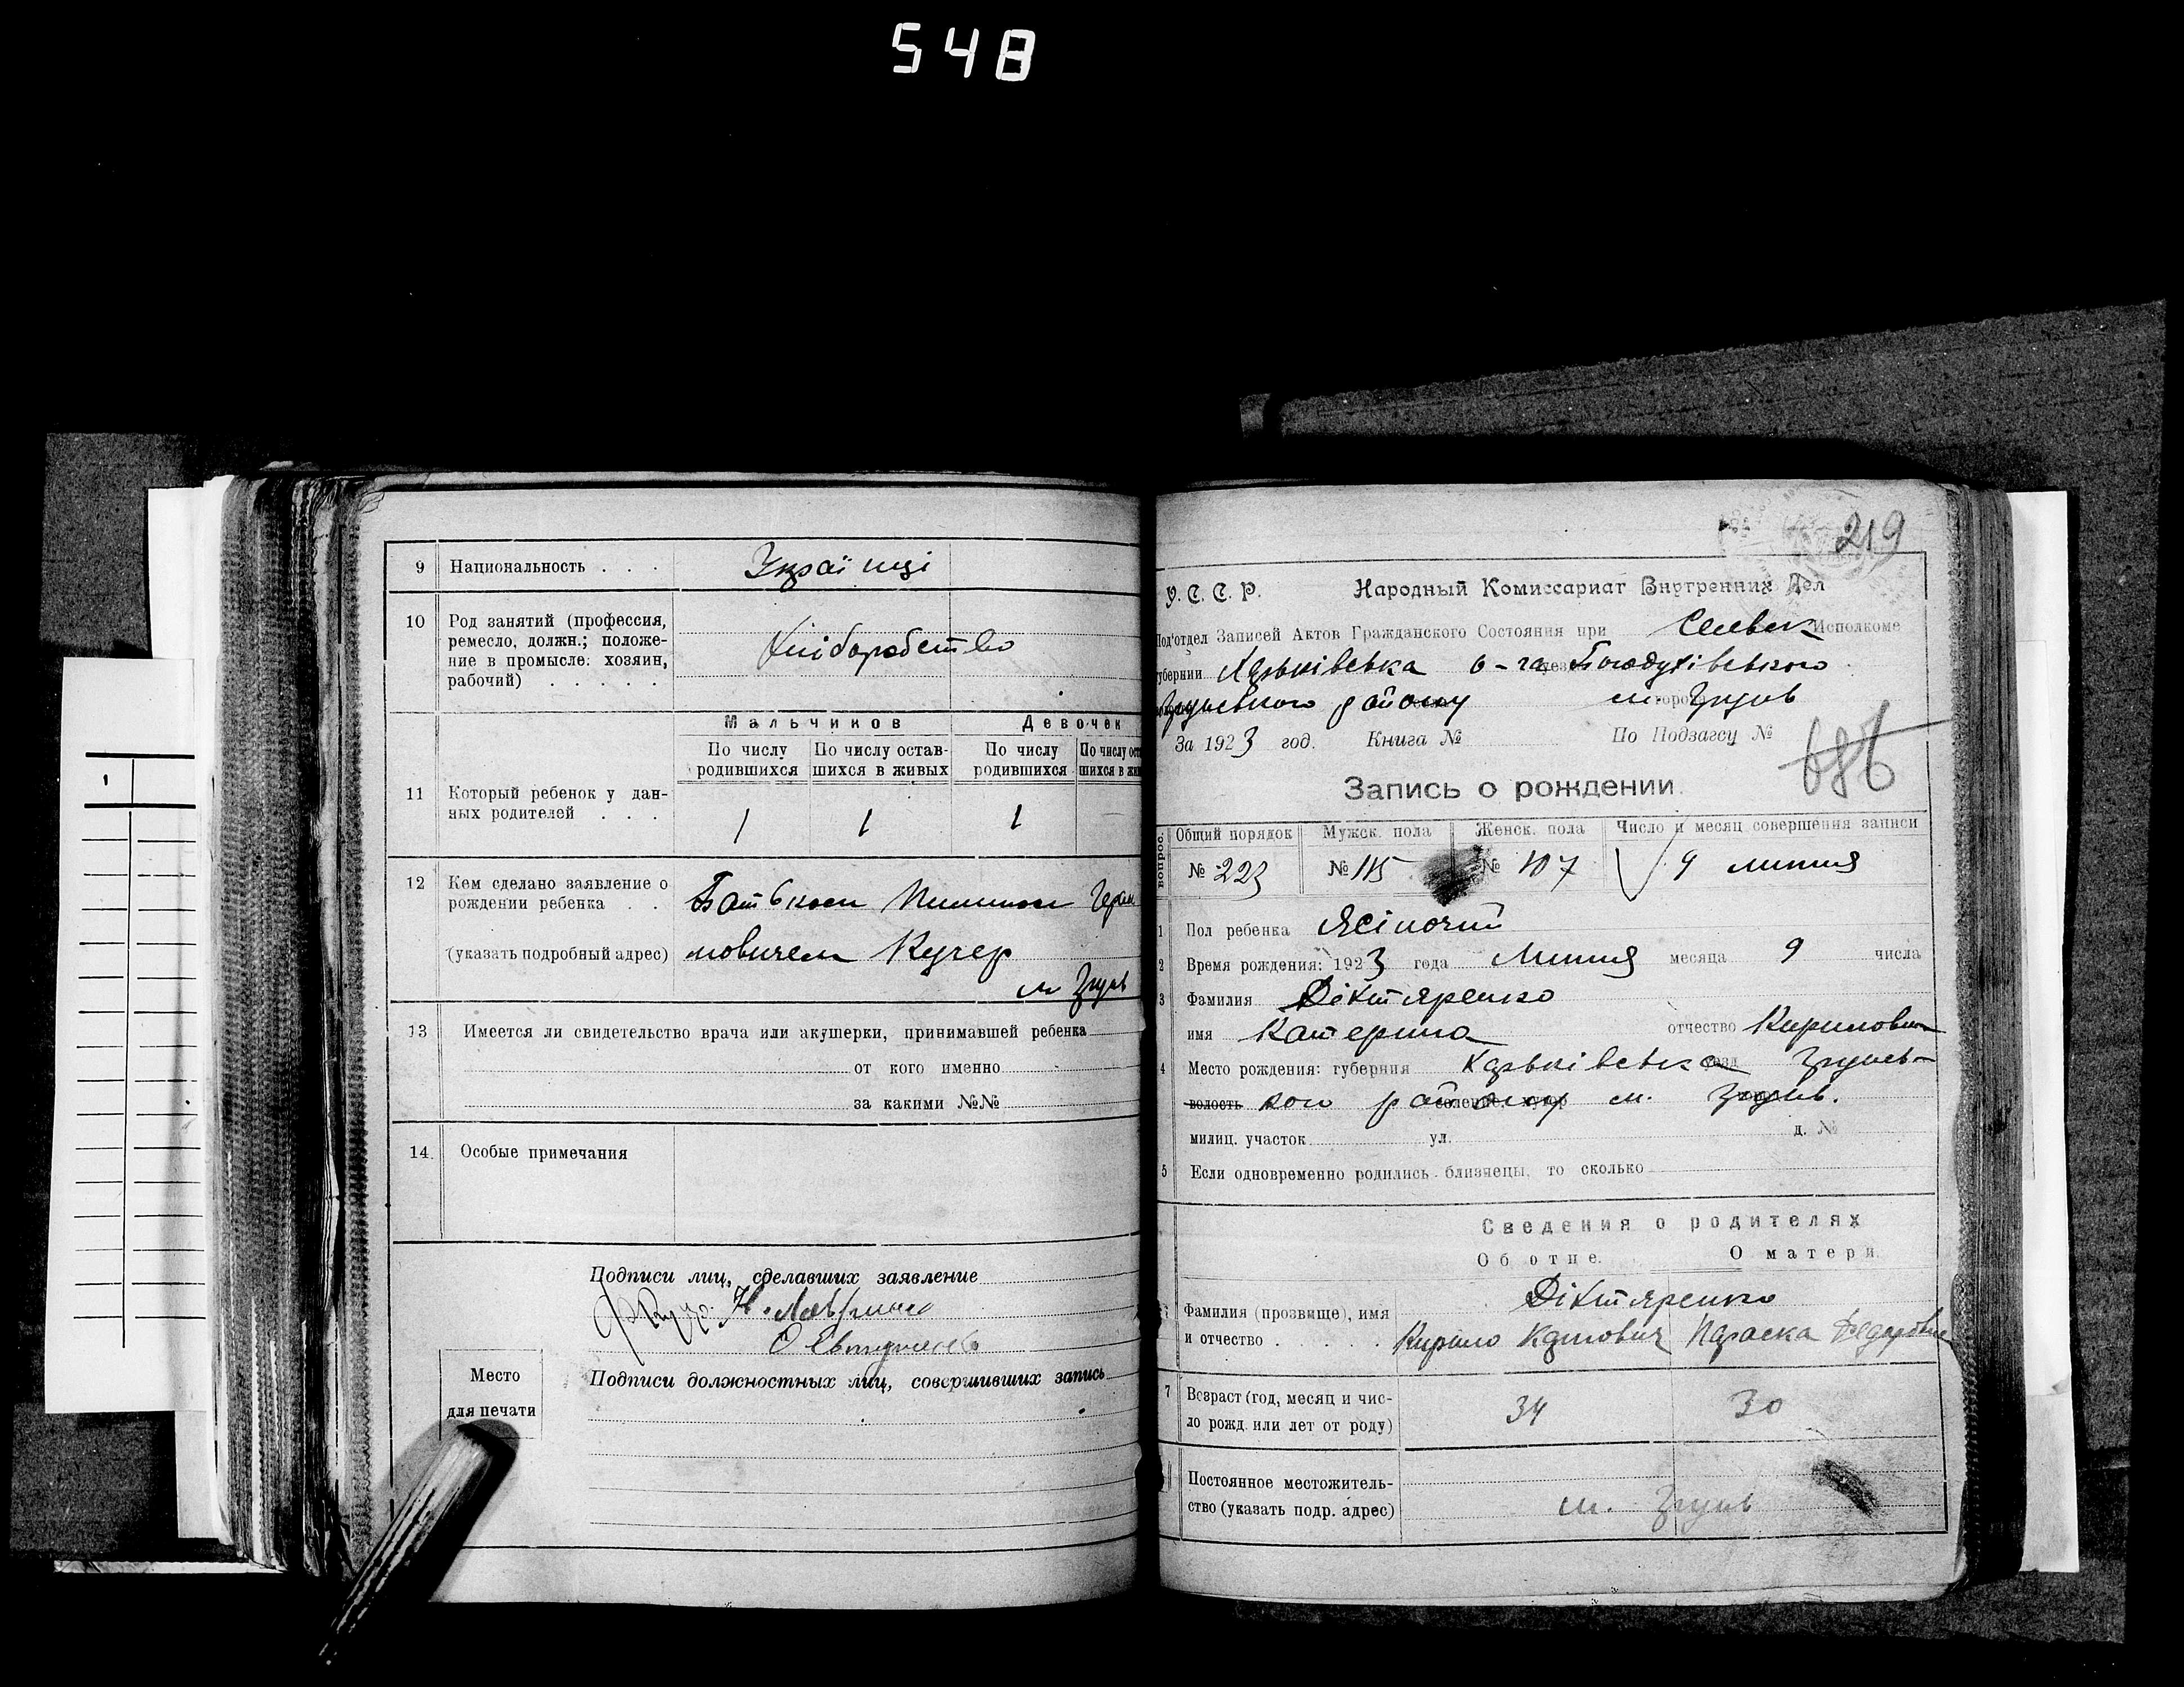 548
9 Национальность . . . Українці
10 Род занятий (профессия,
ремесло, должн.; положе-
ние в промысле: хозяин,
рабочий) . . . . .
Хліборобство
Мальчиков Девочек
По числу родившихся По числу остав-шихся в живых По числу родившихся По числу ост
шихся в жи
11 Который ребенок у дан-
ных родителей . . .
1 1 1 —
12 Кем сделано заявление о
рождении ребенка . .
(указать подробный адрес)
Батьком
мовичем Кучер
м
13 Имеется ли свидетельство врача или акушерки, принимавшей ребенка
от кого именно
за какими №№
14. Особые примечания
Подписи лиц, сделавших заявление
Подписи должностных лиц, совершивших запись
Место
для печати
219
У. С. С. Р. Народный Комиссариат Внутренних Дел
Под'отдел Записей Актов Гражданского Состояния при Исполкоме
губернии Харьківська Богодухівського
району м.
За 1923 год. Книга № По Подзагсу №
686
Запись о рождении
вопрос. Общий порядок Мужск. пола Женск. пола Число и месяц совершения записи
№ 223 № 115 № 107 9 липня
1 Пол ребенка Жіночий
2 Время рождения: 1923 года Липня месяца 9 числа
3 Фамилия Діктяренко
имя Катерина отчество Кириловн
4 Место рождения: губерния Харьківська уезд
волость кого району м.
милиц. участок ул. д. №
5 Если одновременно родились близнецы, то сколько
Сведения о родителях
Об отце. О матери.
Фамилия (прозвище), имя
и отчество . . . . .
Діктяренко
Кирило Параска Федоровн
7 Возраст (год, месяц и чис-
ло рожд. или лет от роду)
34 30
Постоянное местожитель-
ство (указать подр. адрес)
м.